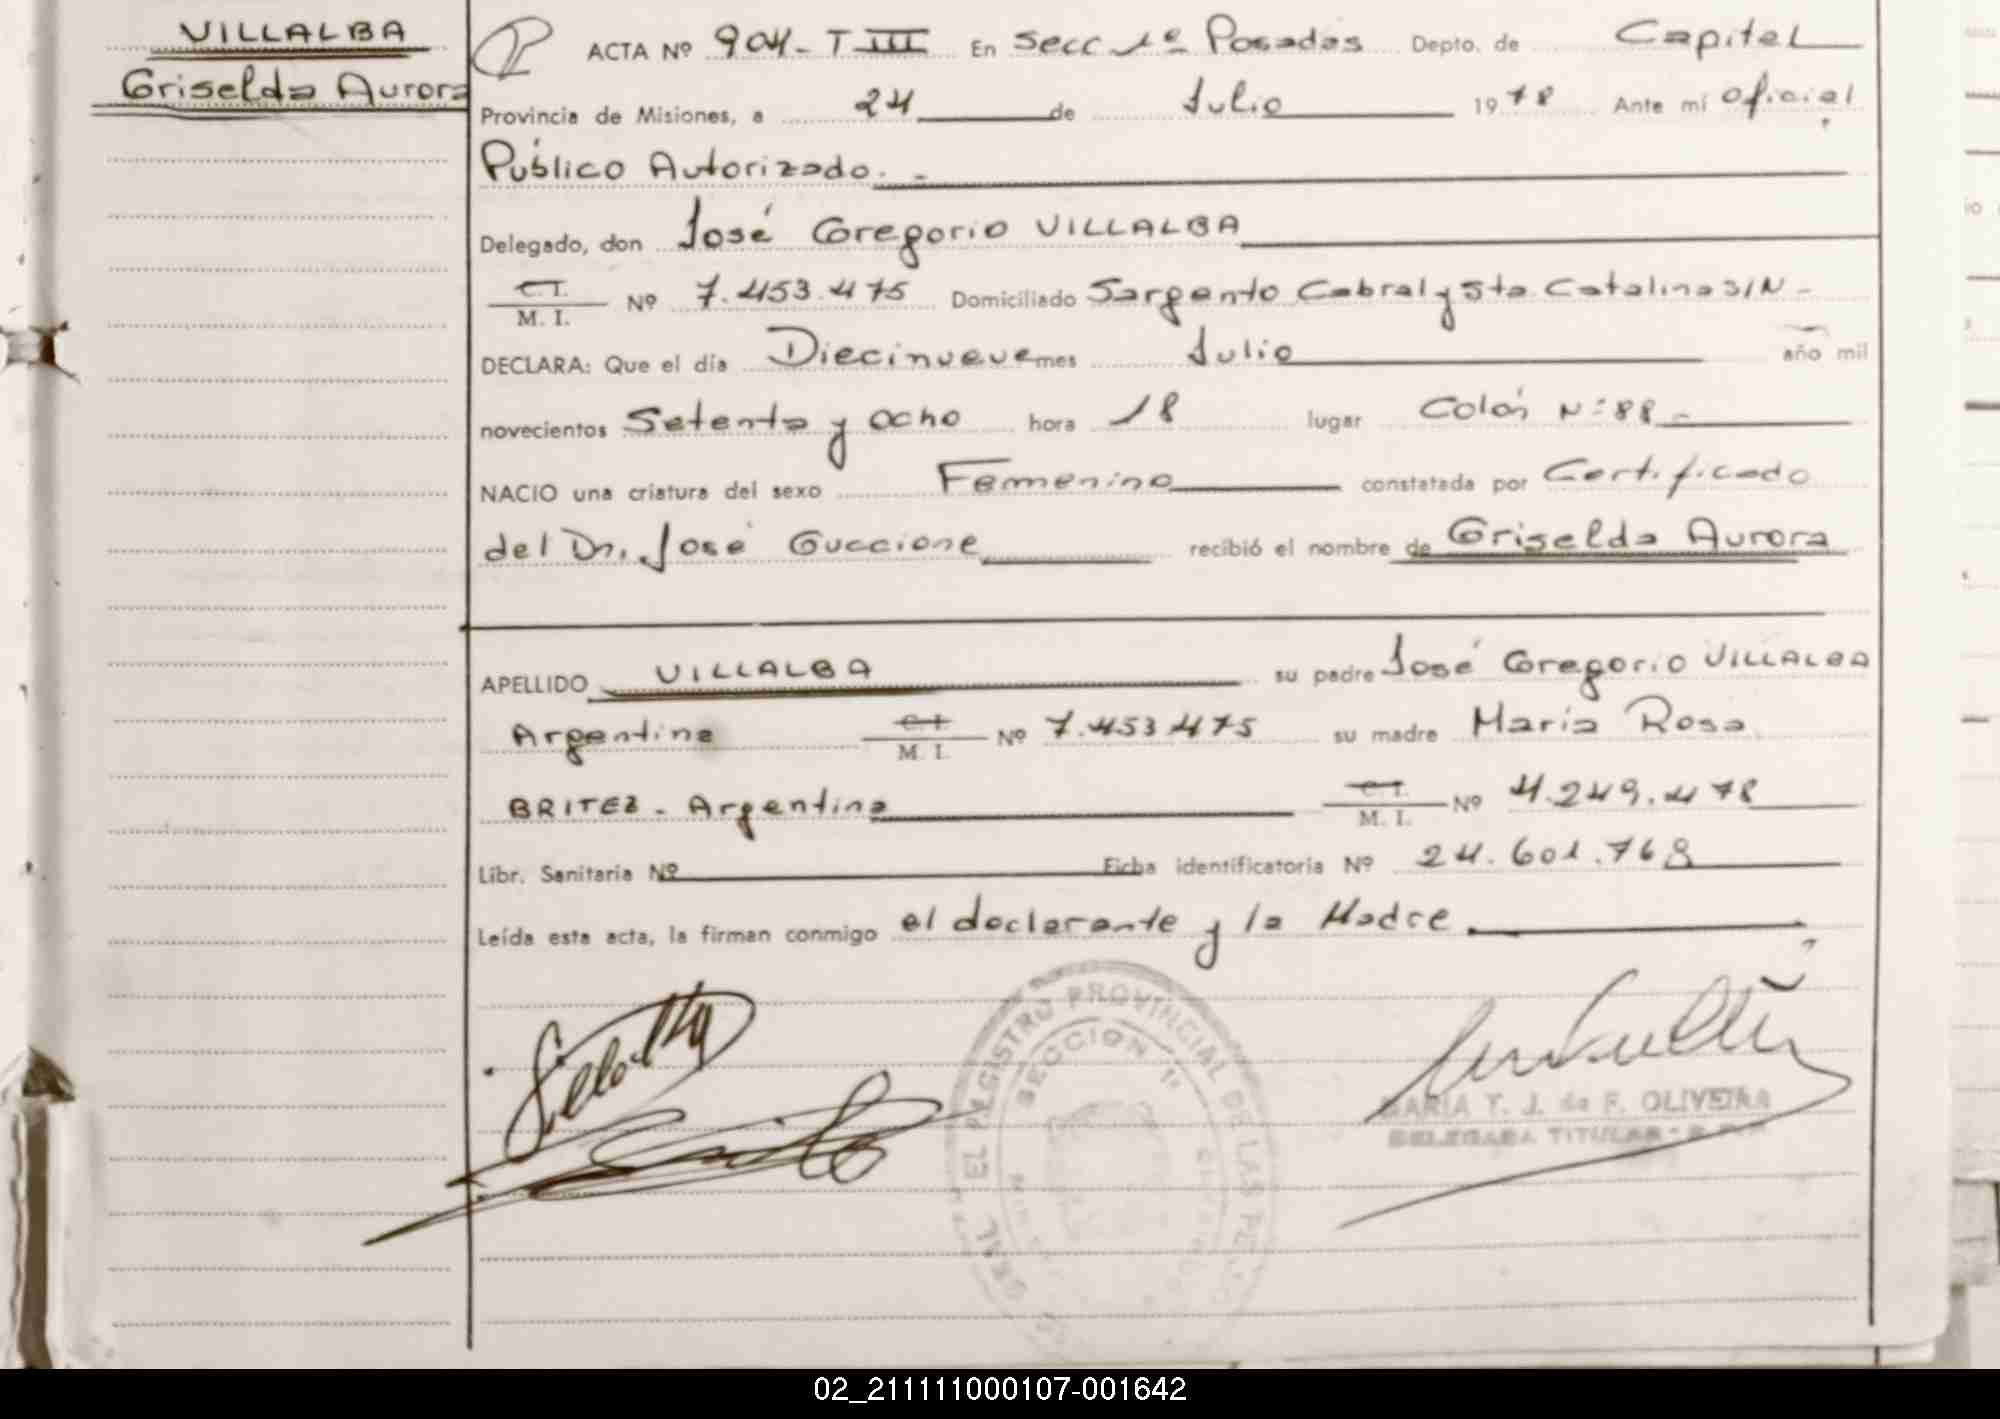 VILLALBA
Griselda Aurora
ACTA Nº 904- T III En Secc 1º Posadas Depto. de Capital
Provincia de Misiones, a 24 de Julio 1978 Ante mí Oficial
Público Autorizado. -
Delegado, don José Gregorio VILLALBA
C.I.
M. I. Nº 7.453.475 Domiciliado Sargento Cabral y Sta Catalina S/N -
DECLARA: Que el día Diecinueve mes Julio año mil
novecientos Setenta y ocho hora 18 lugar Colón N: 88 -
NACIO una criatura del sexo Femenino constatada por Certificado
del Dr. José Guccione recibió el nombre de Griselda Aurora
APELLIDO VILLALBA su padre José Gregorio VILLALBA
Argentina C.I.
M. I. Nº 7.453.475 su madre María Rosa
BRITEZ - Argentina C.I.
M. I. Nº 4.249.478
Libr. Sanitaria Nº Ficha identificatoria Nº 24.601.768
Leída esta acta, la firman conmigo el declarante y la Madre
REGISTRO PROVINCIAL DE LAS PE
SECCION 1ª
MARIA T. J. de F. OLIVEIRA
DELEGADA TITULAR
02_211111000107-001642